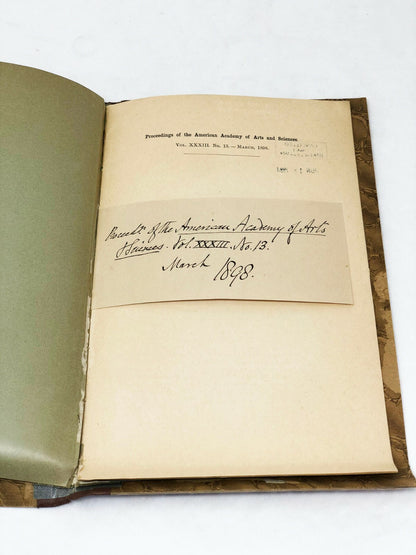 Proceedings of the American Academy of Arts and Sciences.
Vol. XXXIII. No. 13. — March, 1898.
Proceedgs of the American Academy of Arts
& Sciences. Vol. XXXIII. No. 13.
March 1898.